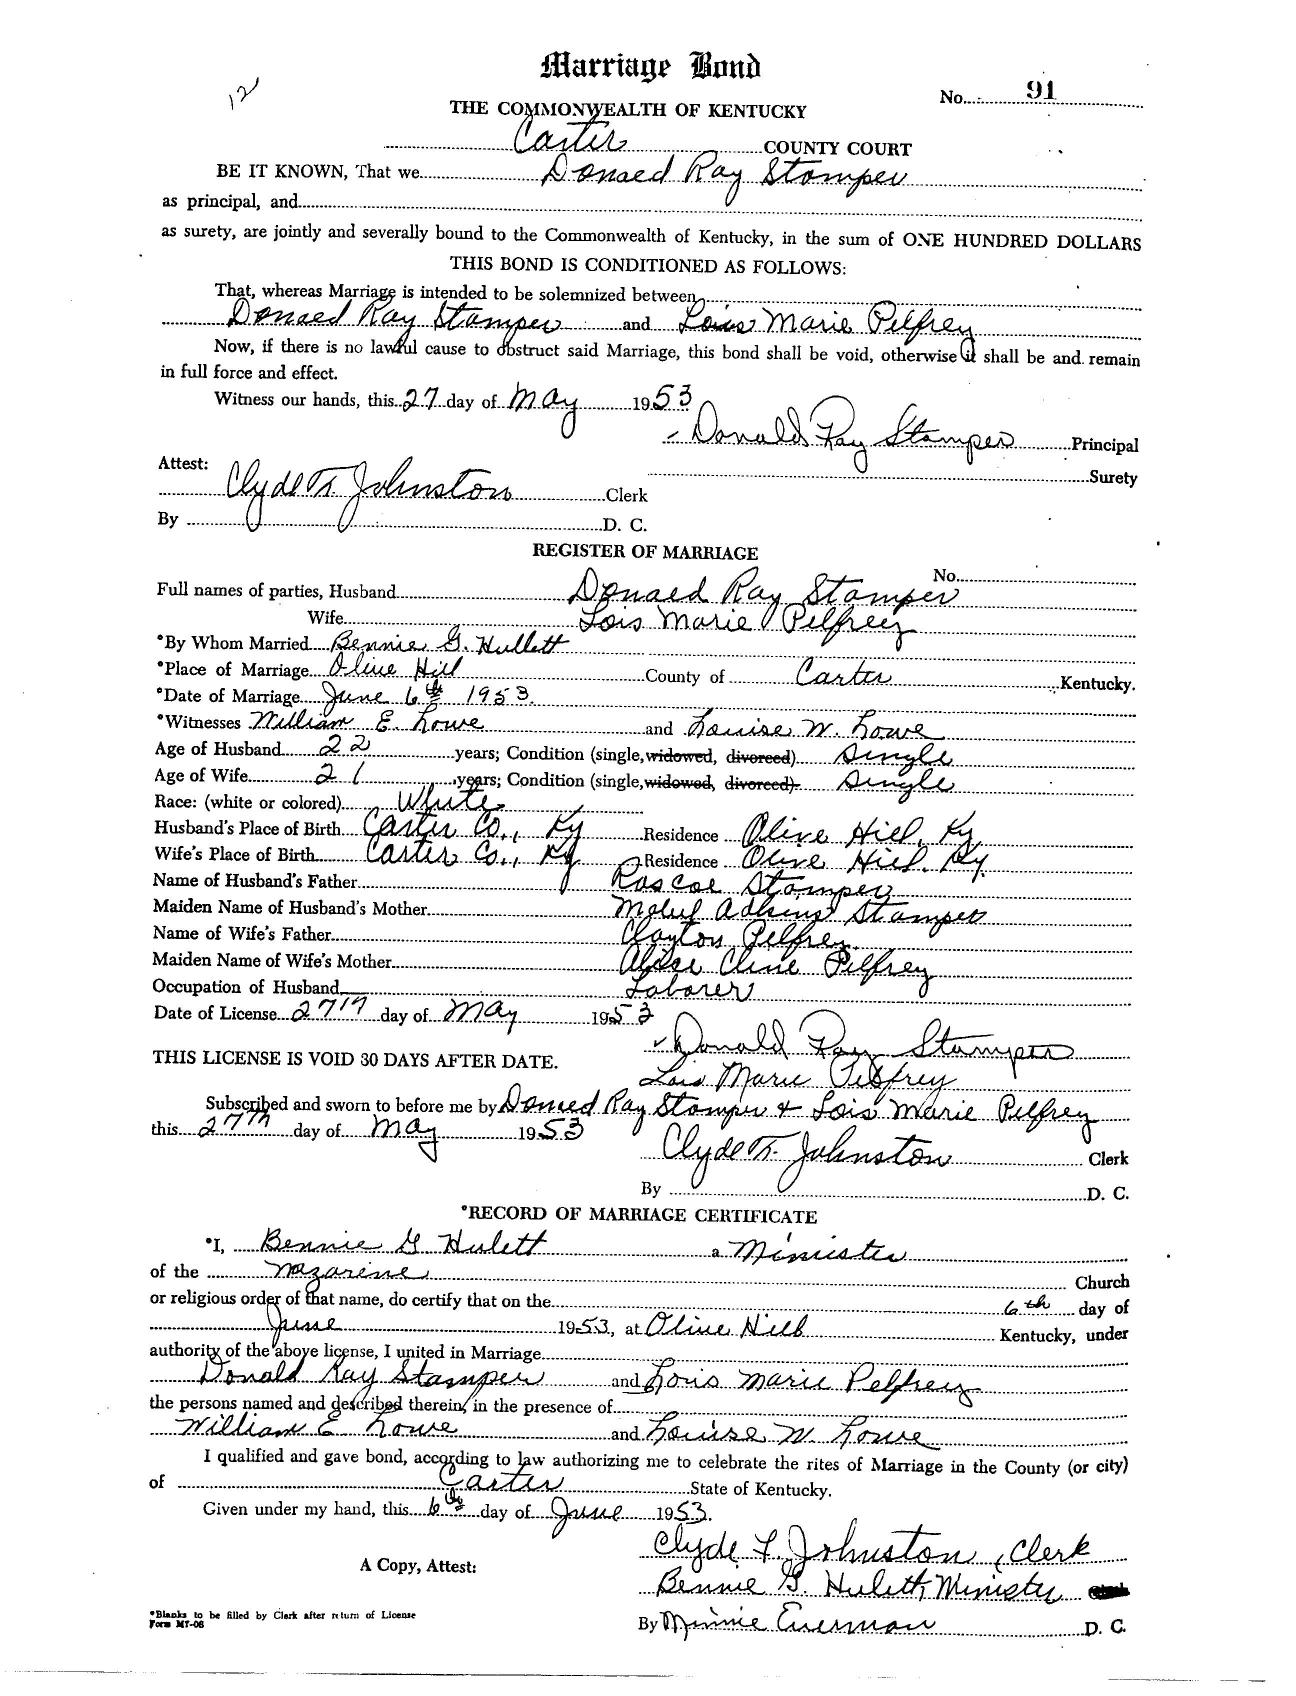 Marriage Bond
12
No. 91
THE COMMONWEALTH OF KENTUCKY
Carter COUNTY COURT
BE IT KNOWN, That we Donald Ray Stamper
as principal, and
as surety, are jointly and severally bound to the Commonwealth of Kentucky, in the sum of ONE HUNDRED DOLLARS
THIS BOND IS CONDITIONED AS FOLLOWS:
That, whereas Marriage is intended to be solemnized between
Donald Ray Stamper and Lois Marie Pelfrey
Now, if there is no lawful cause to obstruct said Marriage, this bond shall be void, otherwise it shall be and remain
in full force and effect.
Witness our hands, this 27 day of May 1953
Donald Ray Stamper Principal
Attest: Surety
Clyde F. Johnston Clerk
By D. C.
REGISTER OF MARRIAGE
No.
Full names of parties, Husband Donald Ray Stamper
Wife Lois Marie Pelfrey
*By Whom Married Bennie G. Hullett
*Place of Marriage Olive Hill County of Carter Kentucky.
*Date of Marriage June 6th 1953.
*Witnesses William E. Lowe and Louise W. Lowe
Age of Husband 22 years; Condition (single, widowed, divorced) Single
Age of Wife 21 years; Condition (single, widowed, divorced). Single
Race: (white or colored) White
Husband's Place of Birth Carter Co., Ky Residence Olive Hill, Ky
Wife's Place of Birth Carter Co., Ky Residence Olive Hill, Ky.
Name of Husband's Father Roscoe Stamper
Maiden Name of Husband's Mother Adkins Stamper
Name of Wife's Father Clayton Pelfrey
Maiden Name of Wife's Mother Cline Pelfrey
Occupation of Husband Laborer
Date of License 27th day of May 1953
Donald Ray Stamper
THIS LICENSE IS VOID 30 DAYS AFTER DATE.
Lois Marie Pelfrey
Subscribed and sworn to before me by Donald Ray Stamper & Lois Marie Pelfrey
this 27th day of May 1953
Clyde F. Johnston Clerk
By D. C.
*RECORD OF MARRIAGE CERTIFICATE
*I, Bennie G Hulett a Minister
of the Nazarene Church
or religious order of that name, do certify that on the 6th day of
June 1953, at Olive Hill Kentucky, under
authority of the above license, I united in Marriage
Donald Ray Stamper and Lois Marie Pelfrey
the persons named and described therein, in the presence of
William E Lowe and Louise W. Lowe
I qualified and gave bond, according to law authorizing me to celebrate the rites of Marriage in the County (or city)
of Carter State of Kentucky.
Given under my hand, this 6th day of June 1953.
Clyde F. Johnston, Clerk
A Copy, Attest:
Bennie G. Hulett, Minister
*Blanks to be filled by Clerk after return of License
Form MT-06
By Minnie Everman D. C.